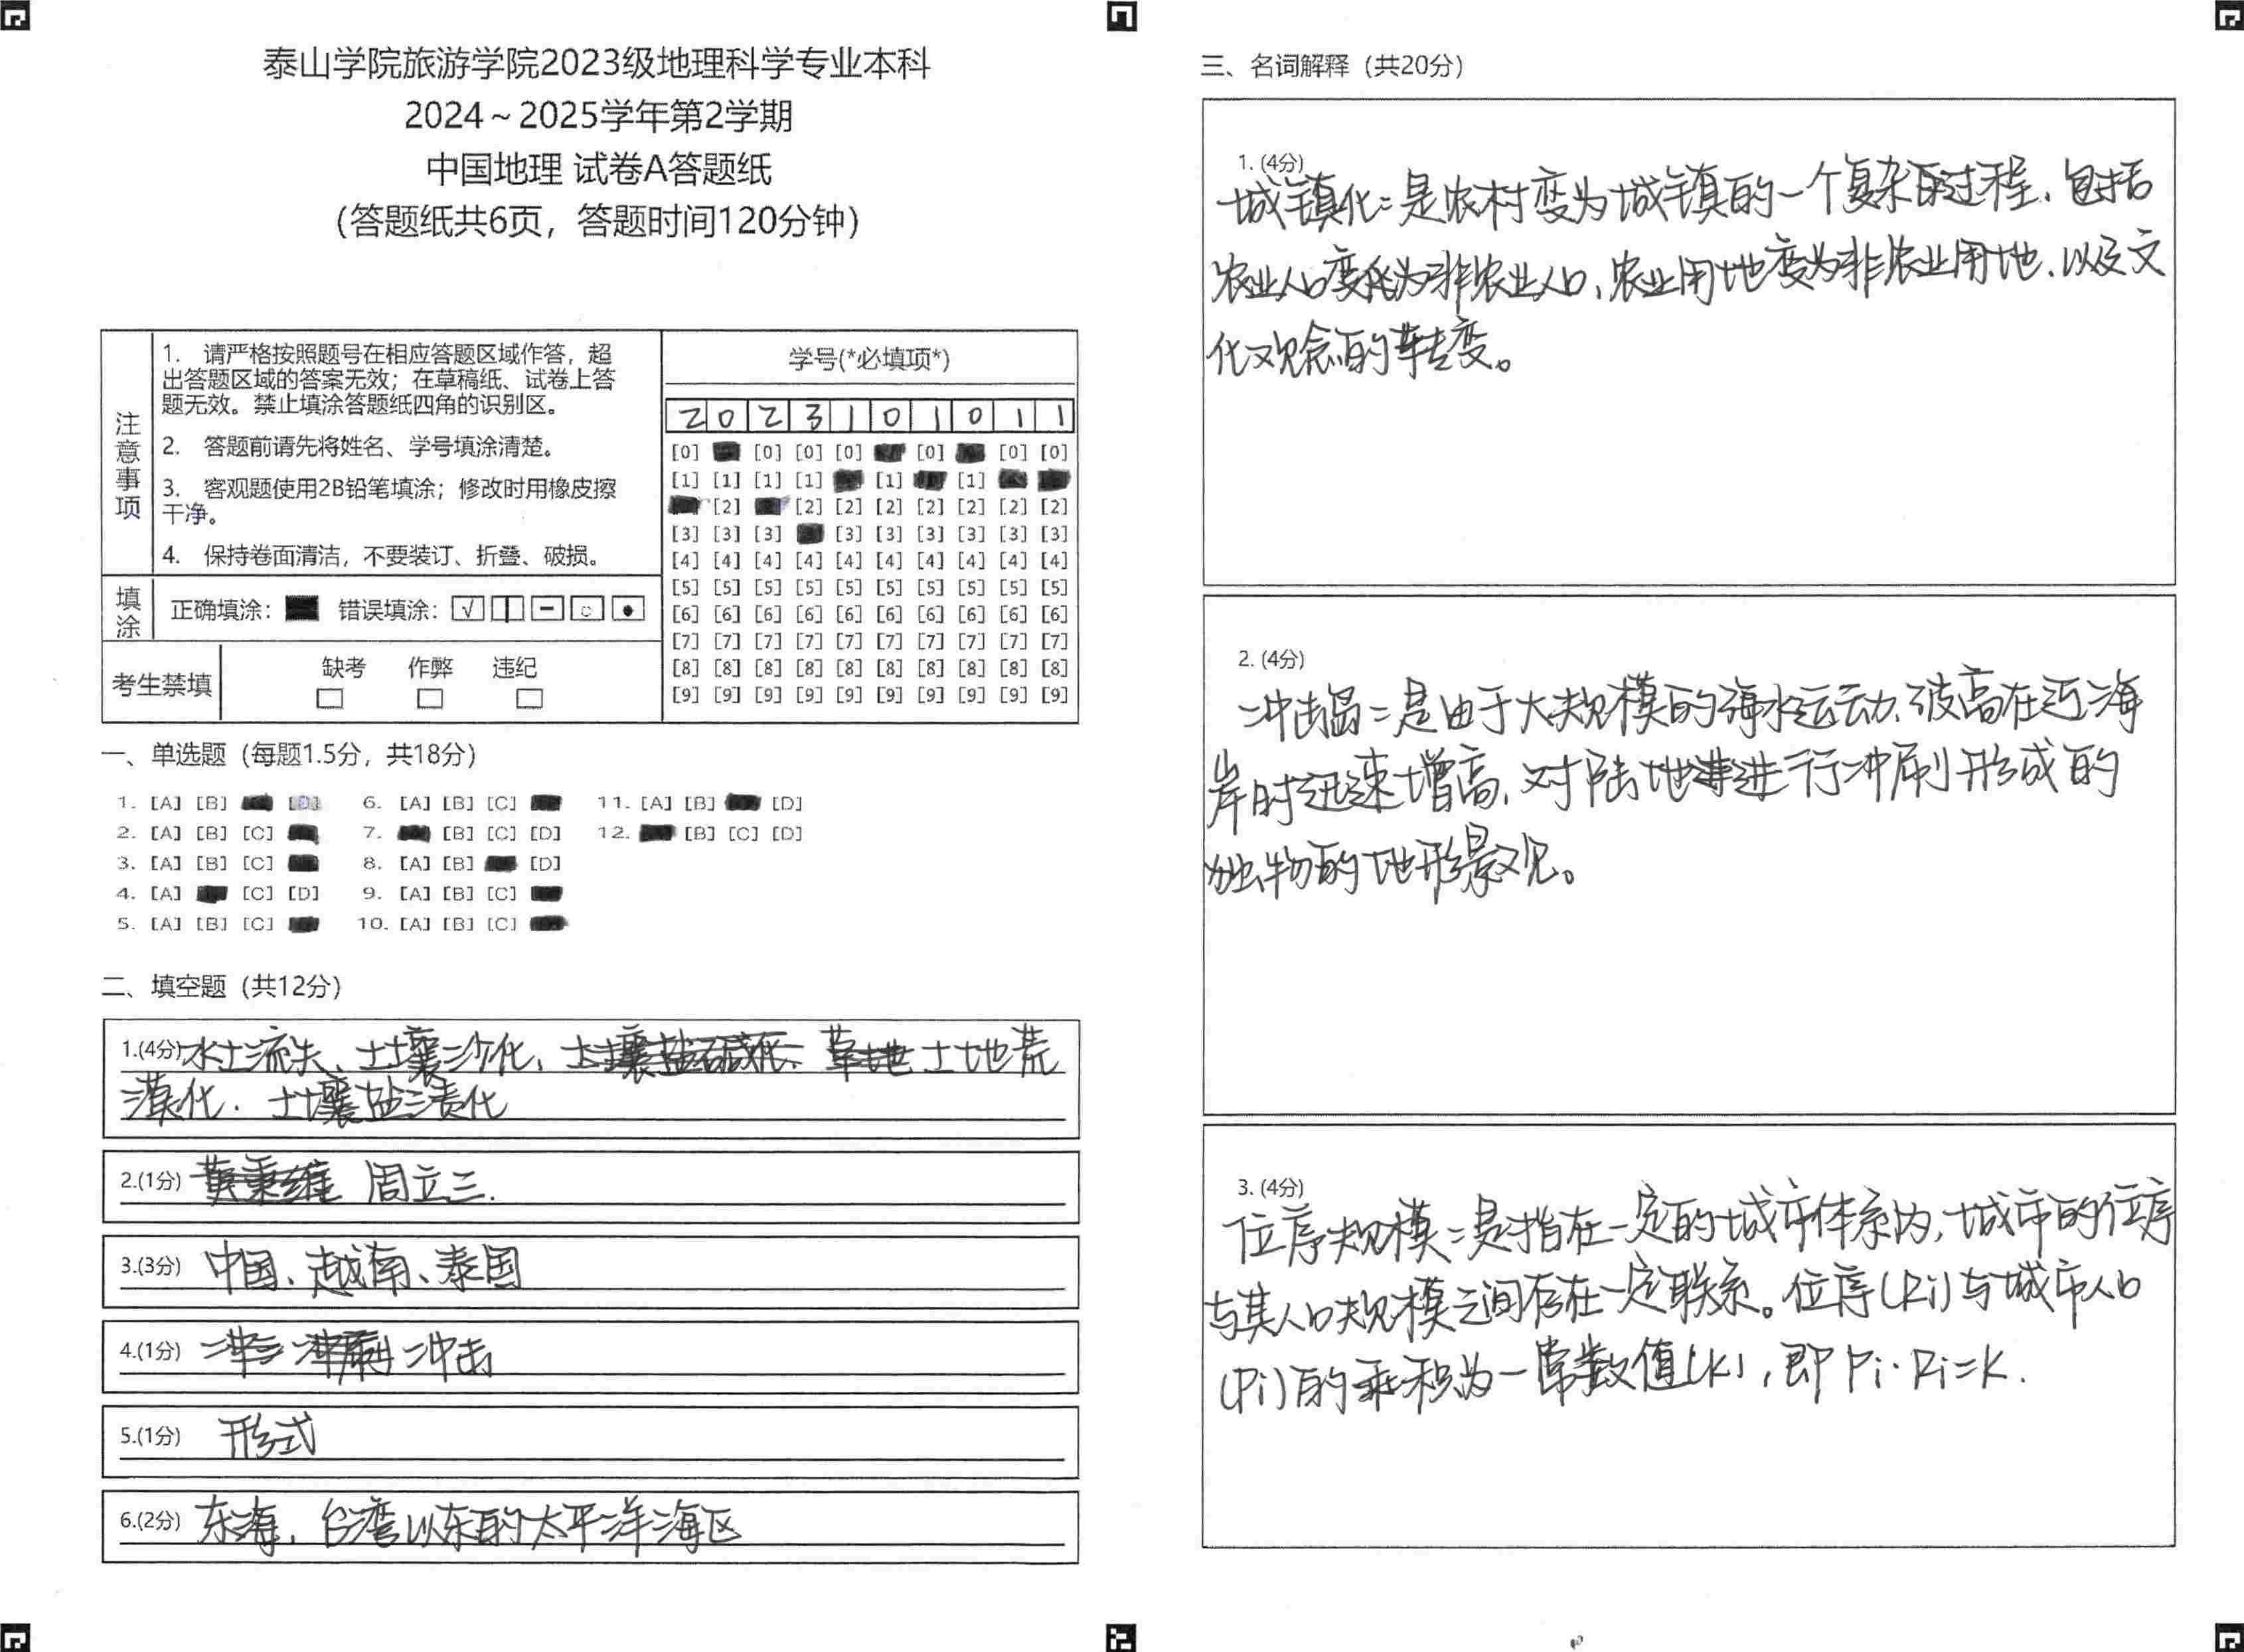 泰山学院旅游学院2023级地理科学专业本科
2024～2025学年第2学期
中国地理 试卷A答题纸
（答题纸共6页，答题时间120分钟）
注意事项
1. 请严格按照题号在相应答题区域作答，超
出答题区域的答案无效；在草稿纸、试卷上答
题无效。禁止填涂答题纸四角的识别区。
2. 答题前请先将姓名、学号填涂清楚。
3. 客观题使用2B铅笔填涂；修改时用橡皮擦
干净。
4. 保持卷面清洁，不要装订、折叠、破损。
填涂
正确填涂： 错误填涂：
考生禁填
缺考 作弊 违纪
学号(*必填项*)
2 0 2 3 1 0 1 0 1 1
[0] [0] [0] [0] [0] [0] [0]
[1] [1] [1] [1] [1] [1]
[2] [2] [2] [2] [2] [2] [2] [2]
[3] [3] [3] [3] [3] [3] [3] [3] [3]
[4] [4] [4] [4] [4] [4] [4] [4] [4] [4]
[5] [5] [5] [5] [5] [5] [5] [5] [5] [5]
[6] [6] [6] [6] [6] [6] [6] [6] [6] [6]
[7] [7] [7] [7] [7] [7] [7] [7] [7] [7]
[8] [8] [8] [8] [8] [8] [8] [8] [8] [8]
[9] [9] [9] [9] [9] [9] [9] [9] [9] [9]
一、单选题（每题1.5分，共18分）
1. [A] [B] [D] 6. [A] [B] [C] 11. [A] [B] [D]
2. [A] [B] [C] 7. [B] [C] [D] 12. [B] [C] [D]
3. [A] [B] [C] 8. [A] [B] [D]
4. [A] [C] [D] 9. [A] [B] [C]
5. [A] [B] [C] 10. [A] [B] [C]
二、填空题（共12分）
1.(4分) 水土流失、土壤沙化、土壤盐碱化、草地土地荒
漠化．土壤盐渍化
2.(1分) 黄秉维 周立三．
3.(3分) 中国、越南、泰国
4.(1分) 冲击
5.(1分) 形式
6.(2分) 东海、台湾以东的太平洋海区
三、名词解释（共20分）
1. (4分)
城镇化：是农村变为城镇的一个复杂的过程、包括
农业人口变化为非农业人口、农业用地变为非农业用地、以及文
化观念的转变。
2. (4分)
冲击岛：是由于大规模的海水运动、波高在近海
岸时迅速增高、对陆地进行冲刷形成的
独特的地形景观。
3. (4分)
位序规模：是指在一定的城市体系内，城市的位序
与其人口规模之间存在一定联系。位序(Ri)与城市人口
(Pi)的乘积为一常数值(K)，即Pi·Ri=K．